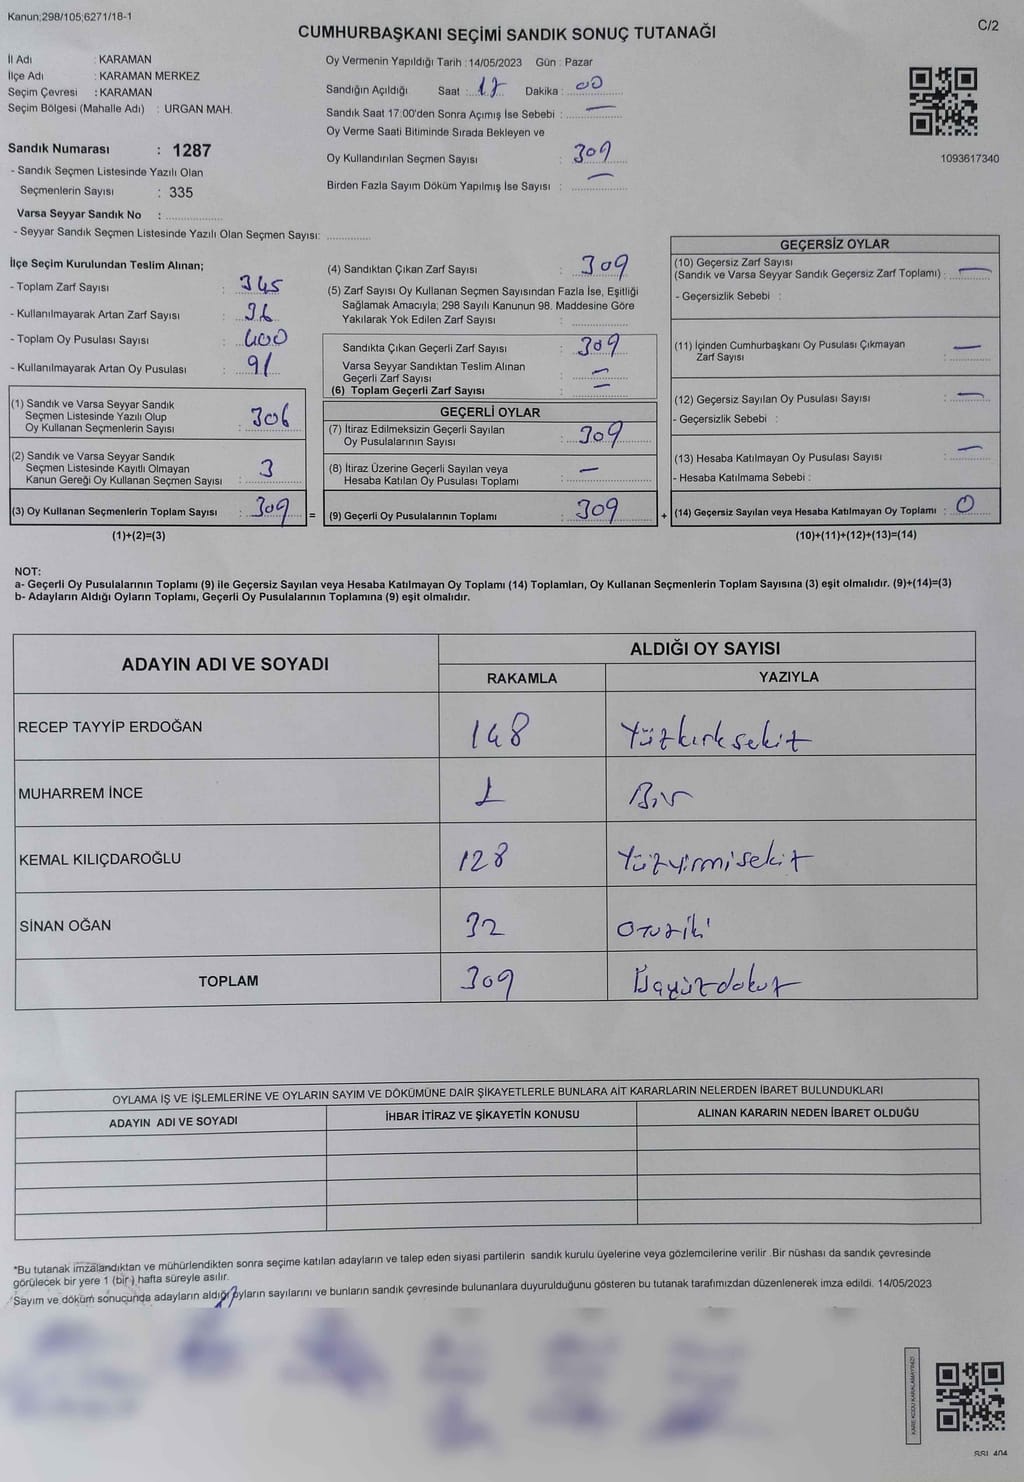 Kanun;298/105;6271/18-1
C/2
CUMHURBAŞKANI SEÇİMİ SANDIK SONUÇ TUTANAĞI
İl Adı : KARAMAN
İlçe Adı : KARAMAN MERKEZ
Seçim Çevresi : KARAMAN
Seçim Bölgesi (Mahalle Adı) : URGAN MAH.
Sandık Numarası : 1287
- Sandık Seçmen Listesinde Yazılı Olan
Seçmenlerin Sayısı : 335
Varsa Seyyar Sandık No :
- Seyyar Sandık Seçmen Listesinde Yazılı Olan Seçmen Sayısı:
Oy Vermenin Yapıldığı Tarih : 14/05/2023 Gün : Pazar
Sandığın Açıldığı Saat : 17 Dakika : 00
Sandık Saat 17:00'den Sonra Açımış İse Sebebi : —
Oy Verme Saati Bitiminde Sırada Bekleyen ve
Oy Kullandırılan Seçmen Sayısı : 309
Birden Fazla Sayım Döküm Yapılmış İse Sayısı : —
1093617340
İlçe Seçim Kurulundan Teslim Alınan;
- Toplam Zarf Sayısı : 345
- Kullanılmayarak Artan Zarf Sayısı : 36
- Toplam Oy Pusulası Sayısı : 400
- Kullanılmayarak Artan Oy Pusulası : 91
(1) Sandık ve Varsa Seyyar Sandık
Seçmen Listesinde Yazılı Olup
Oy Kullanan Seçmenlerin Sayısı : 306
(2) Sandık ve Varsa Seyyar Sandık
Seçmen Listesinde Kayıtlı Olmayan
Kanun Gereği Oy Kullanan Seçmen Sayısı : 3
(3) Oy Kullanan Seçmenlerin Toplam Sayısı : 309 =
(1)+(2)=(3)
(4) Sandıktan Çıkan Zarf Sayısı : 309
(5) Zarf Sayısı Oy Kullanan Seçmen Sayısından Fazla İse, Eşitliği
Sağlamak Amacıyla; 298 Sayılı Kanunun 98. Maddesine Göre
Yakılarak Yok Edilen Zarf Sayısı :
Sandıkta Çıkan Geçerli Zarf Sayısı : 309
Varsa Seyyar Sandıktan Teslim Alınan
Geçerli Zarf Sayısı : —
(6) Toplam Geçerli Zarf Sayısı : —
GEÇERLİ OYLAR
(7) İtiraz Edilmeksizin Geçerli Sayılan
Oy Pusulalarının Sayısı : 309
(8) İtiraz Üzerine Geçerli Sayılan veya
Hesaba Katılan Oy Pusulası Toplamı : —
(9) Geçerli Oy Pusulalarının Toplamı : 309 +
GEÇERSİZ OYLAR
(10) Geçersiz Zarf Sayısı
(Sandık ve Varsa Seyyar Sandık Geçersiz Zarf Toplamı) : —
- Geçersizlik Sebebi :
(11) İçinden Cumhurbaşkanı Oy Pusulası Çıkmayan
Zarf Sayısı : —
(12) Geçersiz Sayılan Oy Pusulası Sayısı : —
- Geçersizlik Sebebi :
(13) Hesaba Katılmayan Oy Pusulası Sayısı : —
- Hesaba Katılmama Sebebi :
(14) Geçersiz Sayılan veya Hesaba Katılmayan Oy Toplamı : 0
(10)+(11)+(12)+(13)=(14)
NOT:
a- Geçerli Oy Pusulalarının Toplamı (9) ile Geçersiz Sayılan veya Hesaba Katılmayan Oy Toplamı (14) Toplamları, Oy Kullanan Seçmenlerin Toplam Sayısına (3) eşit olmalıdır. (9)+(14)=(3)
b- Adayların Aldığı Oyların Toplamı, Geçerli Oy Pusulalarının Toplamına (9) eşit olmalıdır.
ADAYIN ADI VE SOYADI
ALDIĞI OY SAYISI
RAKAMLA YAZIYLA
RECEP TAYYİP ERDOĞAN 148 Yüzkırksekiz
MUHARREM İNCE 1 Bir
KEMAL KILIÇDAROĞLU 128 Yüzyirmisekiz
SİNAN OĞAN 32 Otuziki
TOPLAM 309 Üçyüzdokuz
OYLAMA İŞ VE İŞLEMLERİNE VE OYLARIN SAYIM VE DÖKÜMÜNE DAİR ŞİKAYETLERLE BUNLARA AİT KARARLARIN NELERDEN İBARET BULUNDUKLARI
ADAYIN ADI VE SOYADI İHBAR İTİRAZ VE ŞİKAYETİN KONUSU ALINAN KARARIN NEDEN İBARET OLDUĞU
*Bu tutanak imzalandıktan ve mühürlendikten sonra seçime katılan adayların ve talep eden siyasi partilerin sandık kurulu üyelerine veya gözlemcilerine verilir .Bir nüshası da sandık çevresinde
görülecek bir yere 1 (bir ) hafta süreyle asılır.
Sayım ve döküm sonucunda adayların aldığı oyların sayılarını ve bunların sandık çevresinde bulunanlara duyurulduğunu gösteren bu tutanak tarafımızdan düzenlenerek imza edildi. 14/05/2023
KARE KODU KARALAMAYINIZ!